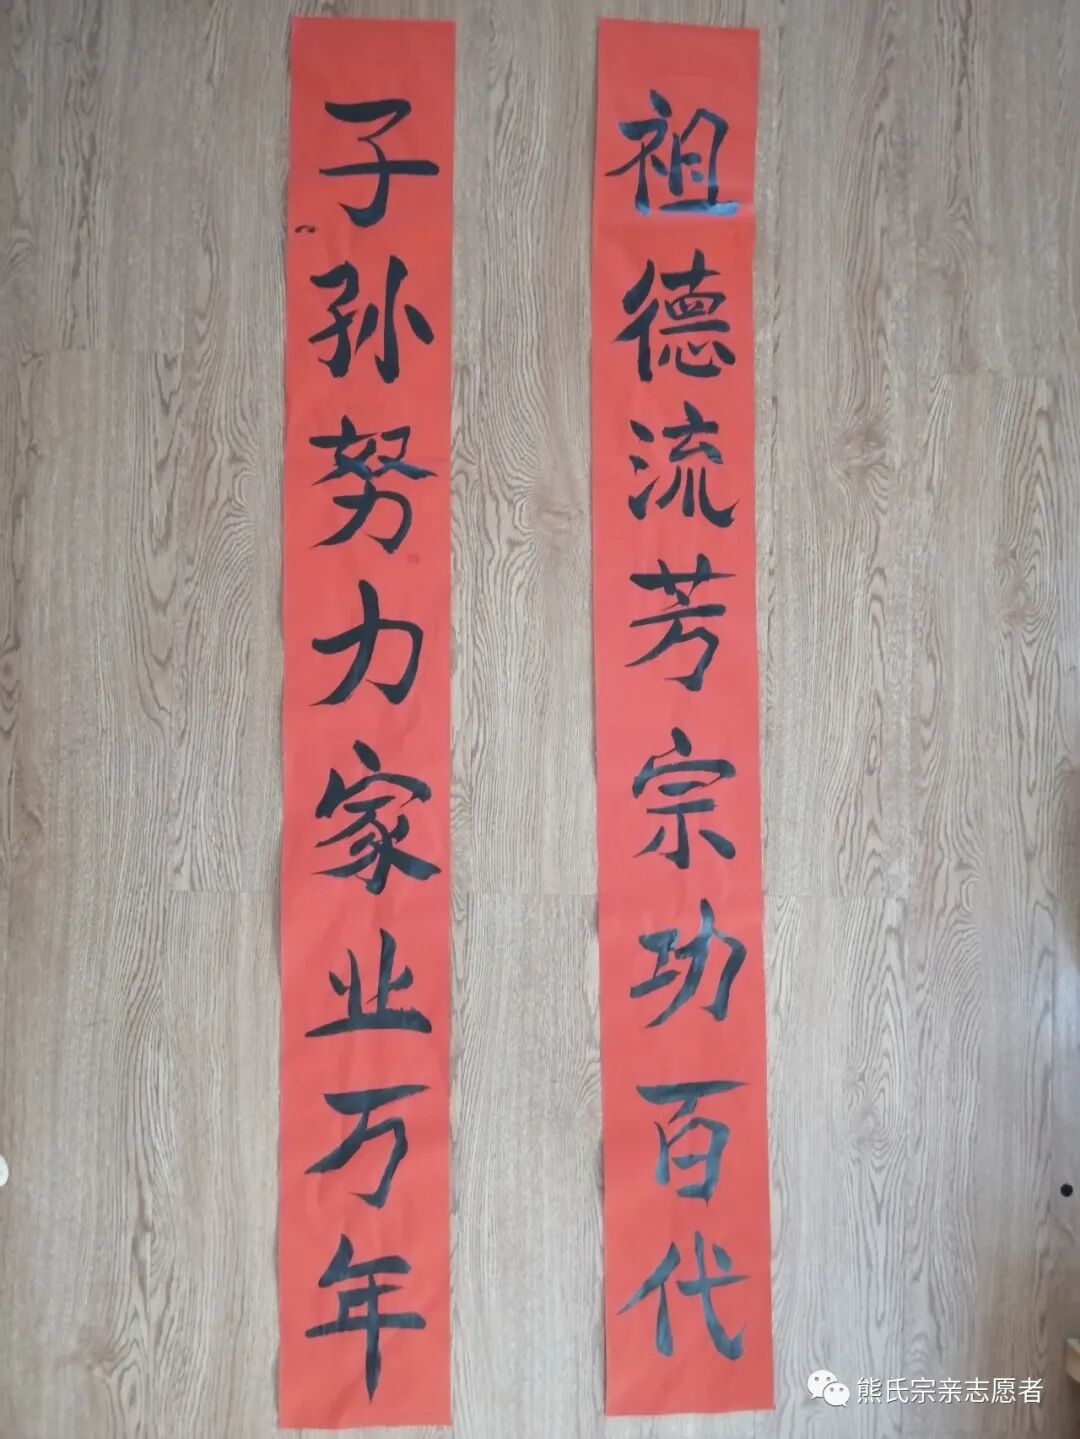 祖德流芳宗功百代
子孙努力家业万年
熊氏宗亲志愿者